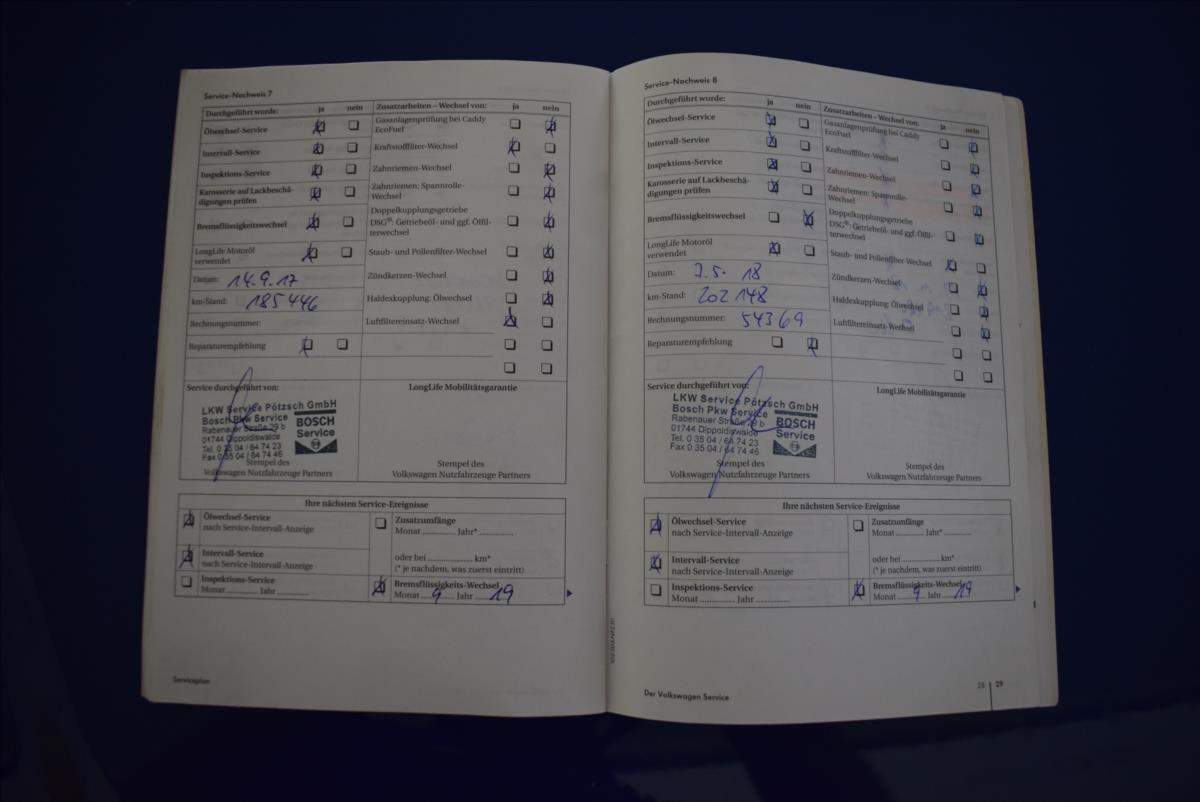 Service-Nachweis 7
Durchgeführt wurde: ja nein Zusatzarbeiten – Wechsel von: ja nein
Ölwechsel-Service
Gasanlagenprüfung bei Caddy
EcoFuel
Intervall-Service
Kraftstofffilter-Wechsel
Inspektions-Service
Zahnriemen-Wechsel
Karosserie auf Lackbeschä-
digungen prüfen
Zahnriemen: Spannrolle-
Wechsel
Bremsflüssigkeitswechsel
Doppelkupplungsgetriebe
DSG®: Getriebeöl- und ggf. Ölfil-
terwechsel
LongLife Motoröl
verwendet
Staub- und Pollenfilter-Wechsel
Datum: 14.9.17
Zündkerzen-Wechsel
km-Stand: 185446
Haldexkupplung: Ölwechsel
Rechnungsnummer:
Luftfiltereinsatz-Wechsel
Reparaturempfehlung
Service durchgeführt von:
LongLife Mobilitätsgarantie
LKW Service Pötzsch GmbH
Bosch Pkw Service
Rabenauer Straße 29 b
01744 Dippoldiswalde
Tel. 0 35 04 / 64 74 23
Fax 0 35 04 / 64 74 46
BOSCH
Service
Stempel des
Volkswagen Nutzfahrzeuge Partners
Stempel des
Volkswagen Nutzfahrzeuge Partners
Ihre nächsten Service-Ereignisse
Ölwechsel-Service
nach Service-Intervall-Anzeige
Zusatzumfänge
Monat ............ Jahr* ............
Intervall-Service
nach Service-Intervall-Anzeige
oder bei ............ km*
(* je nachdem, was zuerst eintritt)
Inspektions-Service
Monat ............ Jahr ............
Bremsflüssigkeits-Wechsel
Monat 9 Jahr 19
Serviceplan
Service-Nachweis 8
Durchgeführt wurde: ja nein Zusatzarbeiten – Wechsel von: ja nein
Ölwechsel-Service
Gasanlagenprüfung bei Caddy
EcoFuel
Intervall-Service
Kraftstofffilter-Wechsel
Inspektions-Service
Zahnriemen-Wechsel
Karosserie auf Lackbeschä-
digungen prüfen
Zahnriemen: Spannrolle-
Wechsel
Bremsflüssigkeitswechsel
Doppelkupplungsgetriebe
DSG®: Getriebeöl- und ggf. Ölfil-
terwechsel
LongLife Motoröl
verwendet
Staub- und Pollenfilter-Wechsel
Datum: 7.5. 18
Zündkerzen-Wechsel
km-Stand: 202 148
Haldexkupplung: Ölwechsel
Rechnungsnummer: 54369
Luftfiltereinsatz-Wechsel
Reparaturempfehlung
Service durchgeführt von:
LongLife Mobilitätsgarantie
LKW Service Pötzsch GmbH
Bosch Pkw Service
Rabenauer Straße 29 b
01744 Dippoldiswalde
Tel. 0 35 04 / 64 74 23
Fax 0 35 04 / 64 74 46
BOSCH
Service
Stempel des
Volkswagen Nutzfahrzeuge Partners
Stempel des
Volkswagen Nutzfahrzeuge Partners
Ihre nächsten Service-Ereignisse
Ölwechsel-Service
nach Service-Intervall-Anzeige
Zusatzumfänge
Monat ............ Jahr* ............
Intervall-Service
nach Service-Intervall-Anzeige
oder bei ............ km*
(* je nachdem, was zuerst eintritt)
Inspektions-Service
Monat ............ Jahr ............
Bremsflüssigkeits-Wechsel
Monat 9 Jahr 19
Der Volkswagen Service
28 | 29